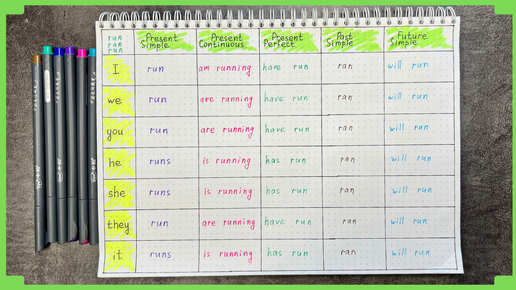 run
run
run
Present Simple Present Continuous Present Perfect Past Simple Future Simple
I run am running have run ran will run
we run are running have run ran will run
you run are running have run ran will run
he runs is running has run ran will run
she runs is running has run ran will run
they run are running have run ran will run
it runs is running has run ran will run